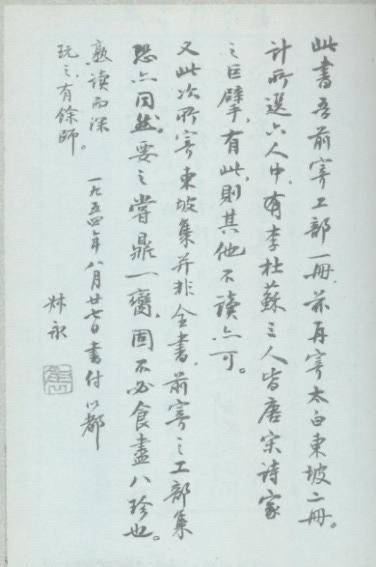 此书吾前寄工部一册，兹再寄太白东坡二册。
计所选六人中，有李杜苏三人皆唐宋诗家
之巨擘，有此，则其他不读亦可。
又此次所寄东坡集并非全书，前寄之工部集
恐亦同然。要之尝鼎一脔，固不必食尽八珍也。
熟读而深
玩之，有馀师。
一九五四年八月廿七日书付以都
林永